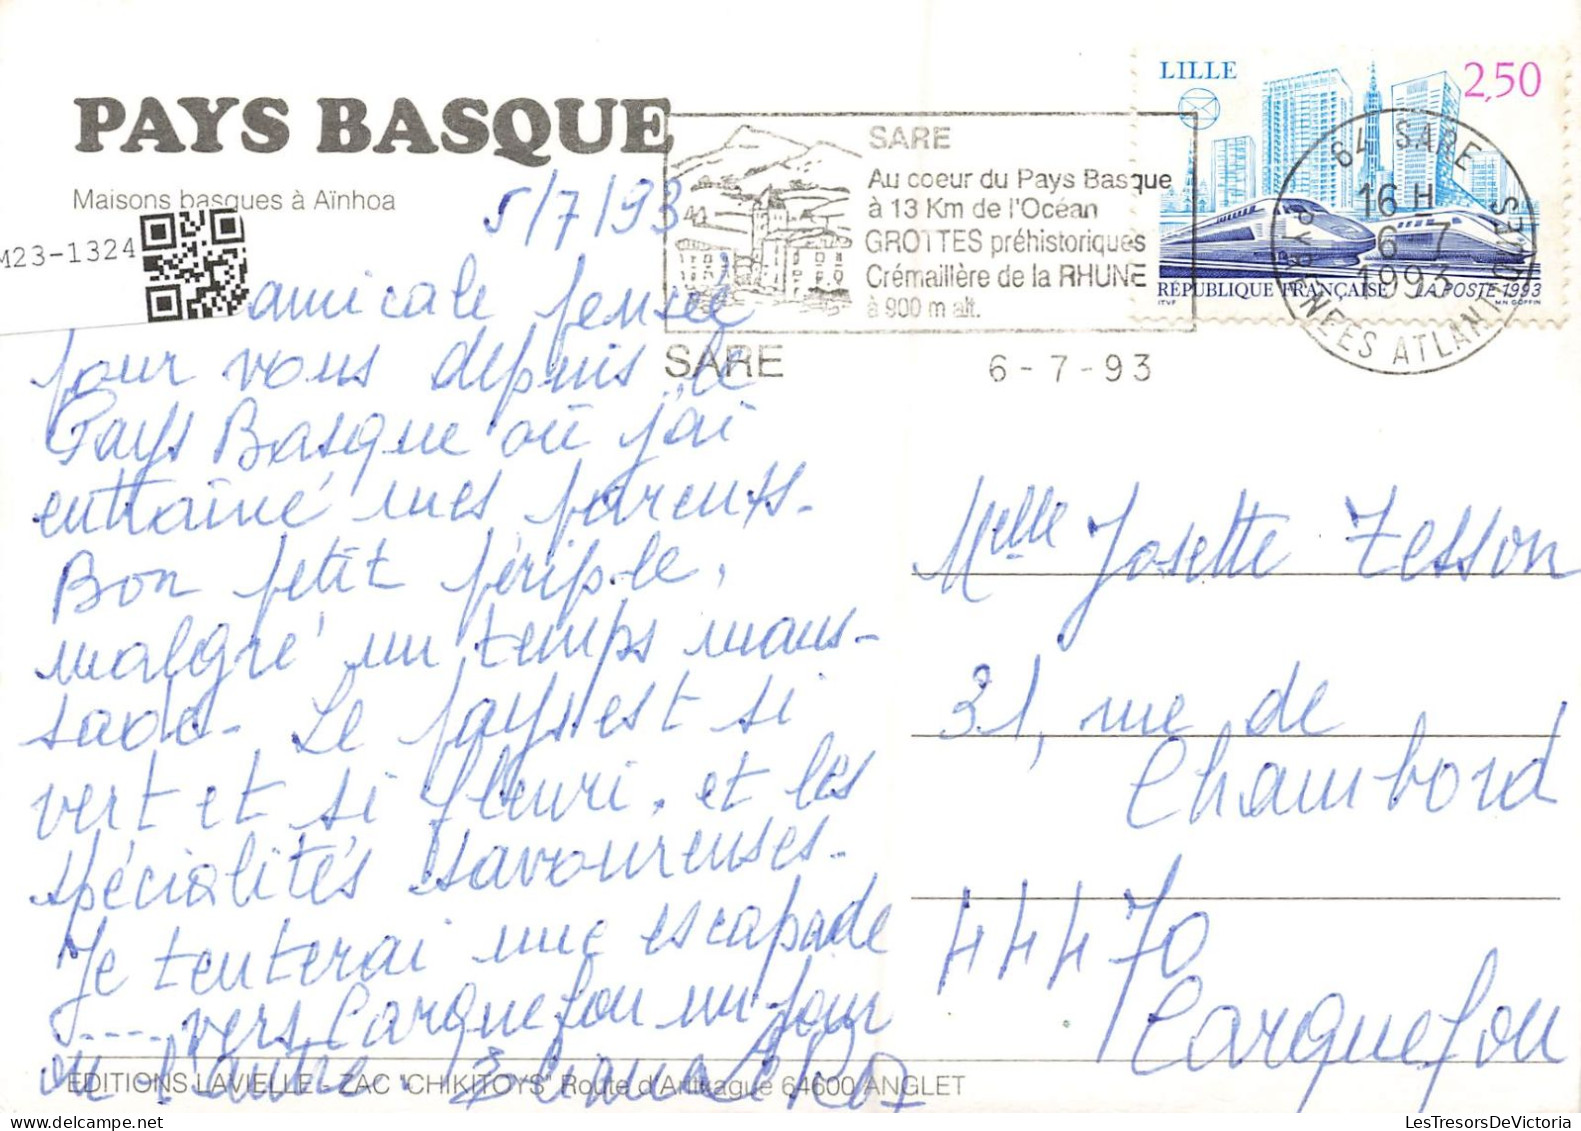 PAYS BASQUE
Maisons basques à Aïnhoa
M23-1324
5/7/93
amicale pensée
pour vous depuis le
Pays Basque où j'ai
entraîné mes parents.
Bon petit périple,
malgré un temps maus-
sade. Le pays est si
vert et si fleuri, et les
spécialités savoureuses.
Je tenterai une escapade
vers Carquefou un jour
ou l'autre.
EDITIONS LAVIELLE - ZAC "CHIKITOYS" Route d'Arttxague 64600 ANGLET
SARE
Au coeur du Pays Basque
à 13 Km de l'Océan
GROTTES préhistoriques
Crémaillère de la RHUNE
à 900 m alt.
SARE
6-7-93
LILLE
2,50
RÉPUBLIQUE FRANÇAISE LA POSTE 1993
ITVF
M.N. GOFFIN
64 SARE
16 H
6 7
1993
PYRENEES ATLANTIQUES
Melle Josette Tesson
31, rue de
Chambord
44470
Carquefou
LesTresorsDeVictoria.com